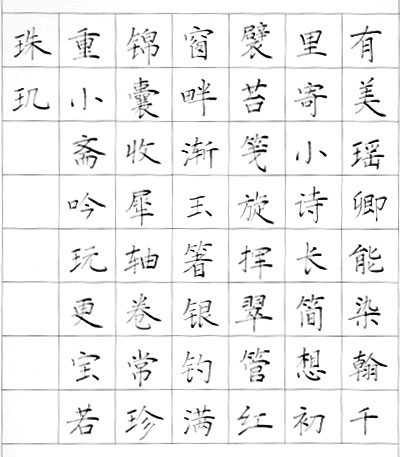 有美瑶卿能染翰千
里寄小诗长简想初
襞苔笺旋挥翠管红
窗畔渐玉箸银钓满
锦囊收犀轴卷常珍
重小斋吟玩更宝若
珠玑